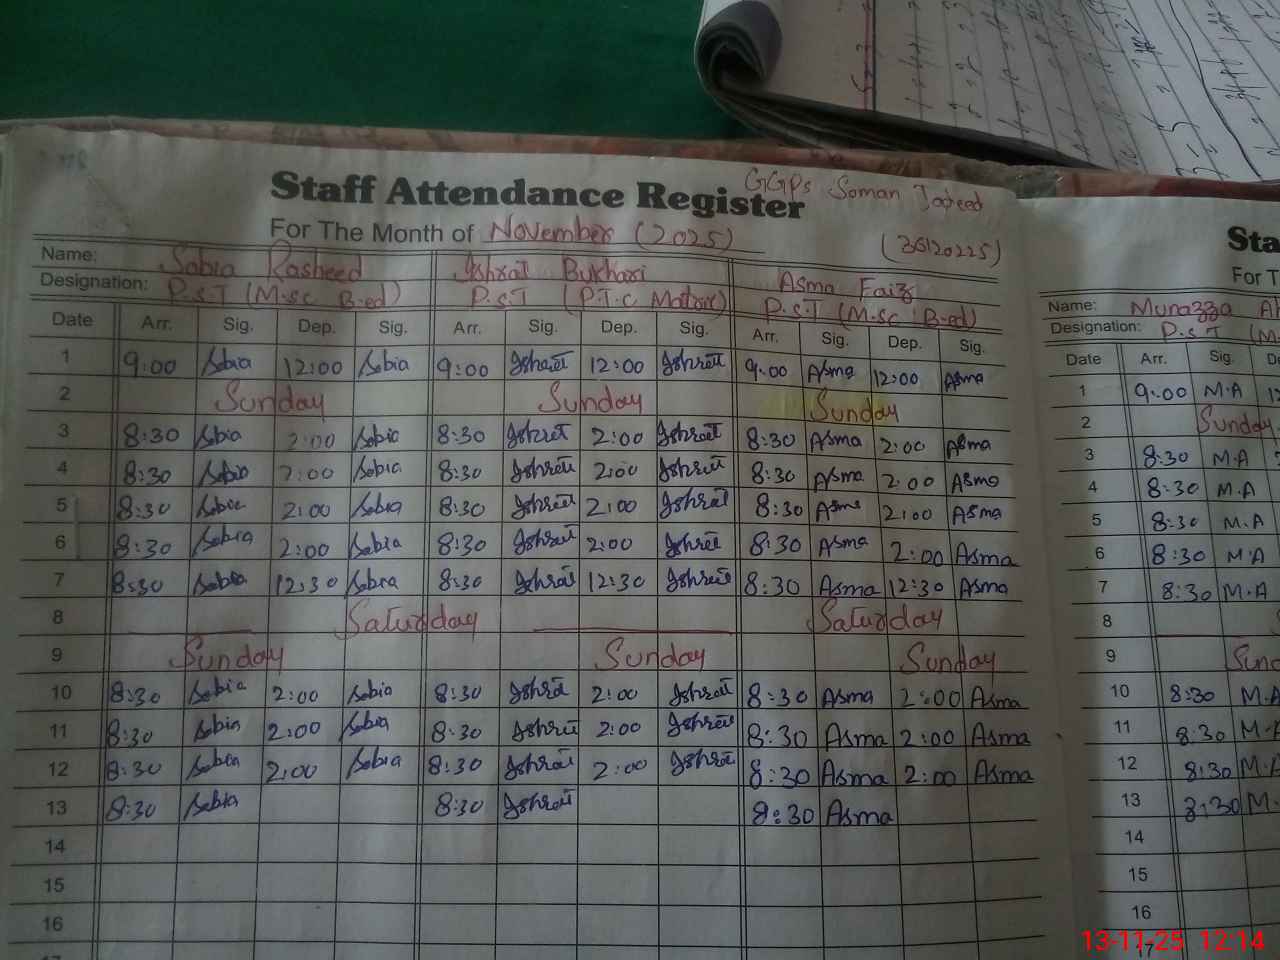 GGPS Soman
Staff Attendance Register
For The Month of November (2025)
(36120225)
Name: Sabia Rasheed Ishrat Bukhari Asma Faiz
Designation: P.S.T (M.sc B-ed) P.S.T (P.T.C Matric) P.S.T (M.sc B-ed)
Date Arr. Sig. Dep. Sig. Arr. Sig. Dep. Sig. Arr. Sig. Dep. Sig.
1 9:00 Sabia 12:00 Sabia 9:00 Ishrat 12:00 Ishrat 9:00 Asma 12:00 Asma
2 Sunday Sunday Sunday
3 8:30 Sabia 2:00 Sabia 8:30 Ishrat 2:00 Ishrat 8:30 Asma 2:00 Asma
4 8:30 Sabia 2:00 Sabia 8:30 Ishrat 2:00 Ishrat 8:30 Asma 2:00 Asma
5 8:30 Sabia 2:00 Sabia 8:30 Ishrat 2:00 Ishrat 8:30 Asma 2:00 Asma
6 8:30 Sabia 2:00 Sabia 8:30 Ishrat 2:00 Ishrat 8:30 Asma 2:00 Asma
7 8:30 Sabia 12:30 Sabia 8:30 Ishrat 12:30 Ishrat 8:30 Asma 12:30 Asma
8 Saturday Saturday
9 Sunday Sunday Sunday
10 8:30 Sabia 2:00 Sabia 8:30 Ishrat 2:00 Ishrat 8:30 Asma 2:00 Asma
11 8:30 Sabia 2:00 Sabia 8:30 Ishrat 2:00 Ishrat 8:30 Asma 2:00 Asma
12 8:30 Sabia 2:00 Sabia 8:30 Ishrat 2:00 Ishrat 8:30 Asma 2:00 Asma
13 8:30 Sabia 8:30 Ishrat 8:30 Asma
14
15
16
Sta
For T
Name: Munazza
Designation: P.S.T (M
Date Arr. Sig.
1 9:00 M.A
2 Sunday
3 8:30 M.A
4 8:30 M.A
5 8:30 M.A
6 8:30 M.A
7 8:30 M.A
8
9 Sund
10 8:30 M.A
11 8:30 M.A
12 8:30 M.A
13 8:30 M.
14
15
16
17
13-11-25 12:14